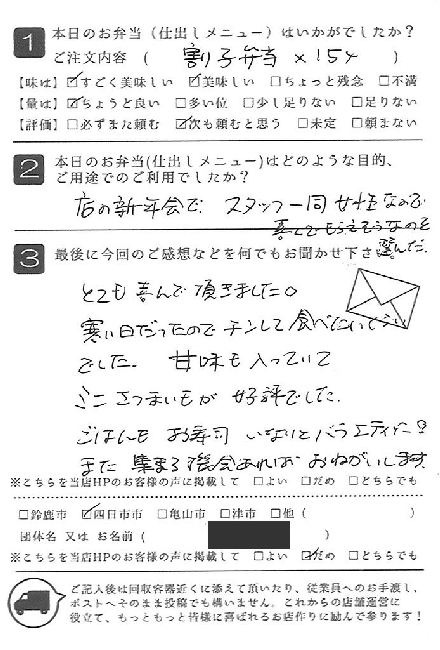 1 本日のお弁当(仕出しメニュー)はいかがでしたか?
ご注文内容 ( 割子弁当 × 15ケ )
【味は】☑すごく美味しい ☑美味しい □ちょっと残念 □不満
【量は】☑ちょうど良い □多い位 □少し足りない □足りない
【評価】□必ずまた頼む ☑次も頼むと思う □未定 □頼まない
2 本日のお弁当(仕出しメニュー)はどのような目的、
ご用途でのご利用でしたか?
店の新年会で スタッフ一同 女性なので
喜んでもらえそうなのを
選んだ。
3 最後に今回のご感想などを何でもお聞かせ下さい
とても喜んで頂きました。
寒い日だったので チンして食べたいくらい
でした. 甘味も入っていて
ミニさつまいもが 好評でした.
ごはんも お寿司 いなりと バラエティに
また 集まる機会あれば おねがいします
※こちらを当店HPのお客様の声に掲載して □よい □だめ □どちらでも
□鈴鹿市 ☑四日市市 □亀山市 □津市 □他( )
団体名 又は お名前 ( )
※こちらを当店HPのお客様の声に掲載して □よい ☑だめ □どちらでも
ご記入後は回収容器近くに添えて頂いたり、従業員へのお手渡し、
ポストへそのまま投稿でも構いません。これからの店舗運営に
役立て、もっともっと皆様に喜ばれるお店作りに励んで参ります!